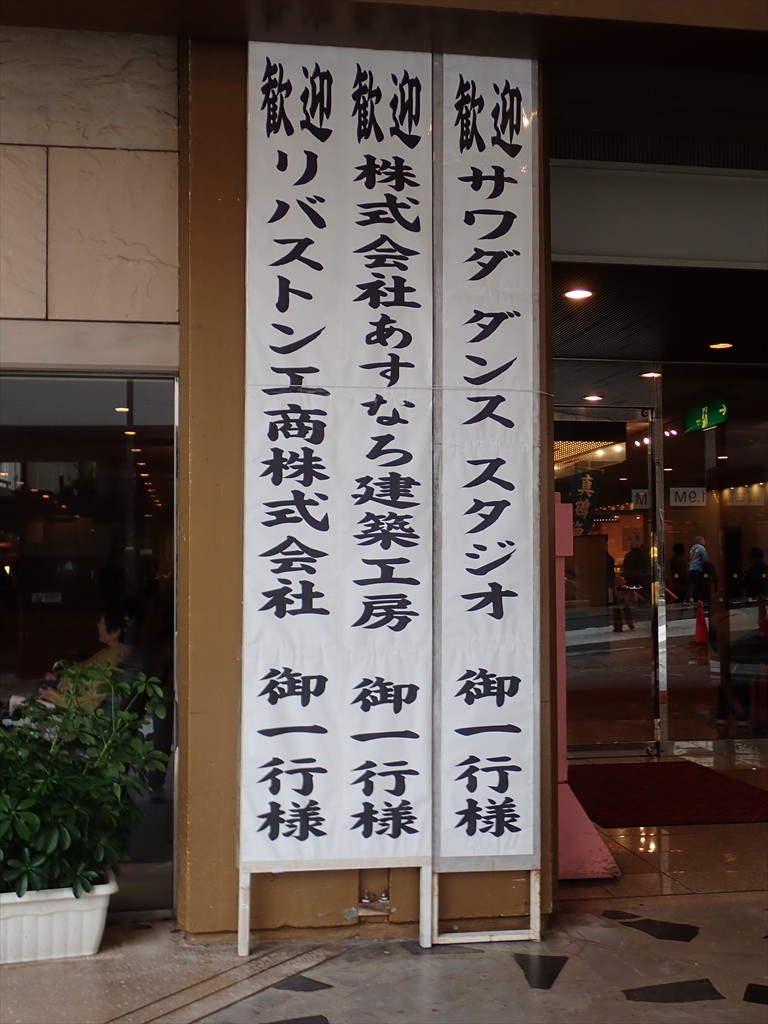 歓迎 サワダ ダンス スタジオ 御一行様
歓迎 株式会社あすなろ建築工房 御一行様
歓迎 リバストン工商株式会社 御一行様